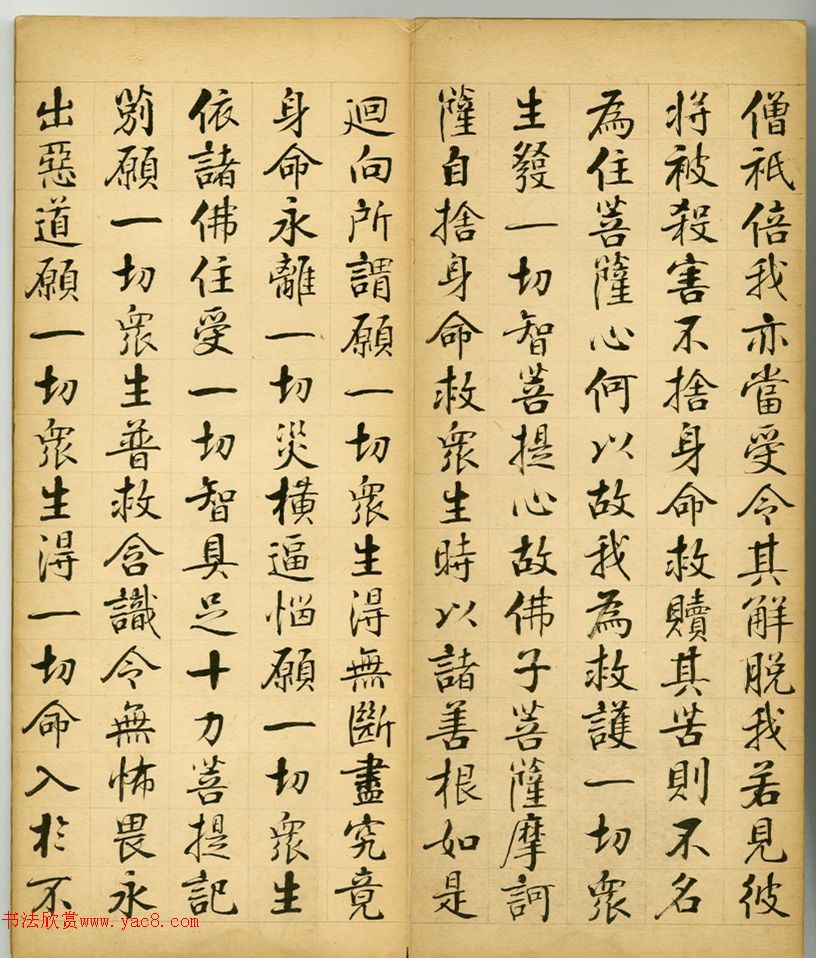 僧祇倍我亦當受令其解脫我若見彼
將被殺害不捨身命救贖其苦則不名
為住菩薩心何以故我為救護一切眾
生發一切智菩提心故佛子菩薩摩訶
薩自捨身命救眾生時以諸善根如是
迴向所謂願一切眾生得無斷盡究竟
身命永離一切災橫逼惱願一切眾生
依諸佛住受一切智具足十力菩提記
別願一切眾生普救含識令無怖畏永
出惡道願一切眾生得一切命入於不
书法欣赏www.yac8.com